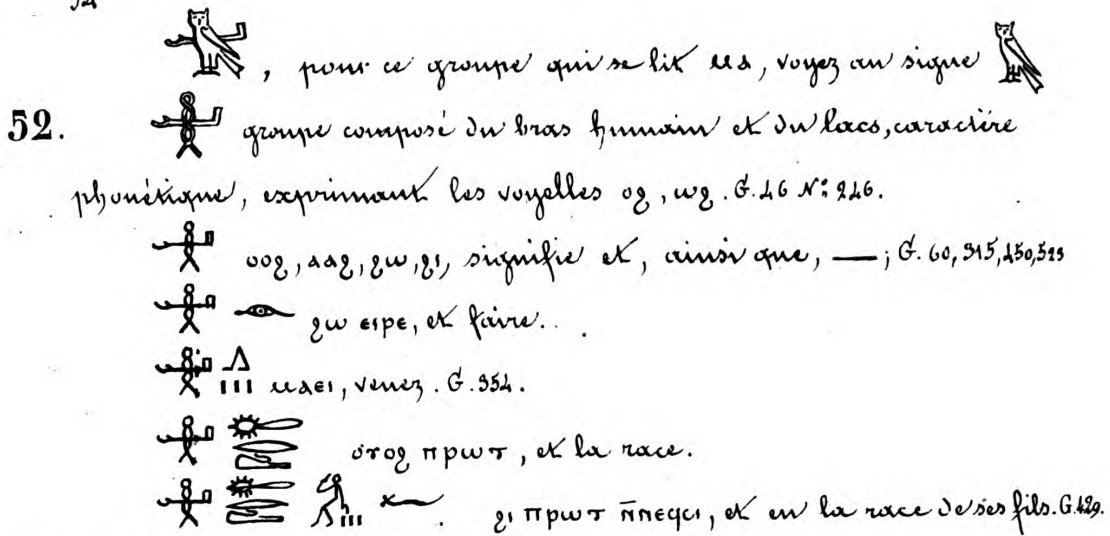 , pour ce groupe qui se lit ⲙⲁ, voyez au signe
52. groupe composé du bras humain et du lacs, caractère
phonétique, exprimant les voyelles ⲟϩ, ⲱϩ. G. 46 N° 246.
ⲟⲟϩ, ⲁⲁϩ, ϩⲱ, ϩⲓ, signifie et, ainsi que, —; G. 60, 315, 450, 523
ϩⲱ ⲉⲓⲣⲉ, et faire.
ⲙⲁⲉⲓ, venez. G. 354.
ⲟⲩⲟϩ ⲡⲣⲱⲧ, et la race.
ϩⲓ ⲡⲣⲱⲧ ⲛ̄ⲛⲉϥⲥⲓ, et en la race de ses fils. G. 429.